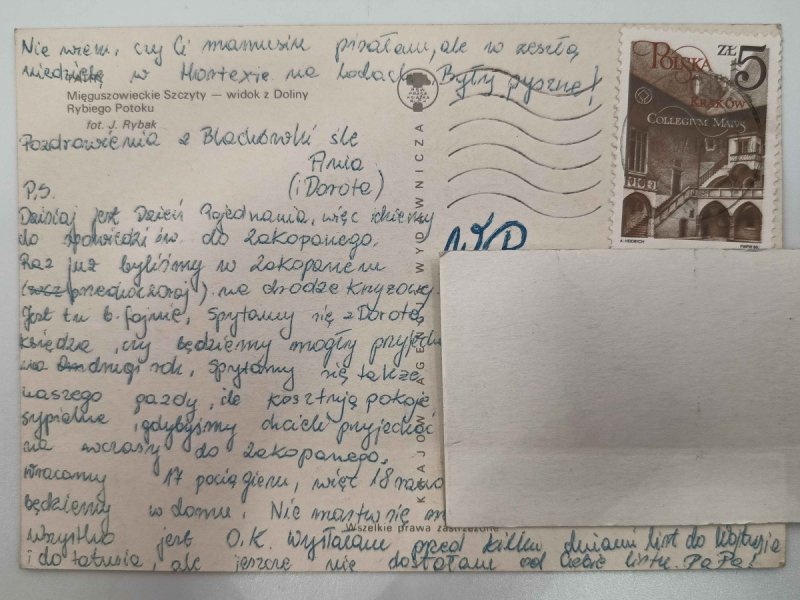 Nie wiem, czy Ci mamusiu pisałam, ale w zeszłą
niedzielę w Hortexie na lodach. Były pyszne!
Mięguszowieckie Szczyty — widok z Doliny
Rybiego Potoku
fot. J. Rybak
Pozdrowienia z Blachówki śle
Ania
(i Dorota)
P.S.
Dzisiaj jest Dzień Pojednania, więc idziemy
do spowiedzi św. do Zakopanego.
Raz już byliśmy w Zakopanem
(przedwczoraj) na drodze krzyżowej.
Jest tu b. fajnie, spytamy się z Dorotą
księdza, czy będziemy mogły przyjechać
na drugi rok, spytamy się także
naszego gazdy, ile kosztują pokoje
sypialne, gdybyśmy chcieli przyjechać
na wczasy do Zakopanego.
Wracamy 17 pociągiem, więc 18 rano
będziemy w domu. Nie martw się
wszystko jest O.K. Wysłałam przed kilku dniami list do Wojtusia
i do tatusia, ale jeszcze nie dostałam od Ciebie listu. Pa Pa!
KRAJOWA AGENCJA WYDAWNICZA
Wszelkie prawa zastrzeżone
POLSKA ZŁ 5
KRAKÓW
COLLEGIUM MAIUS
A. HEIDRICH
PWPW
W.P.